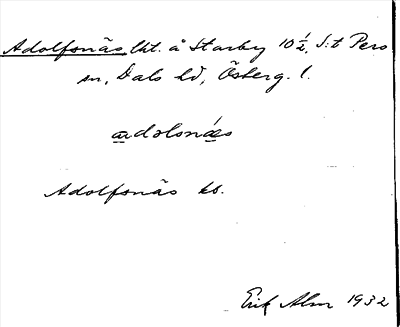 Adolfsnäs, lht. å Starby 10 ½, S:t Pers
sn, Dals hd, Österg. l.
adolsnä́s
Adolfsnäs kb.
Erik Alm 1932